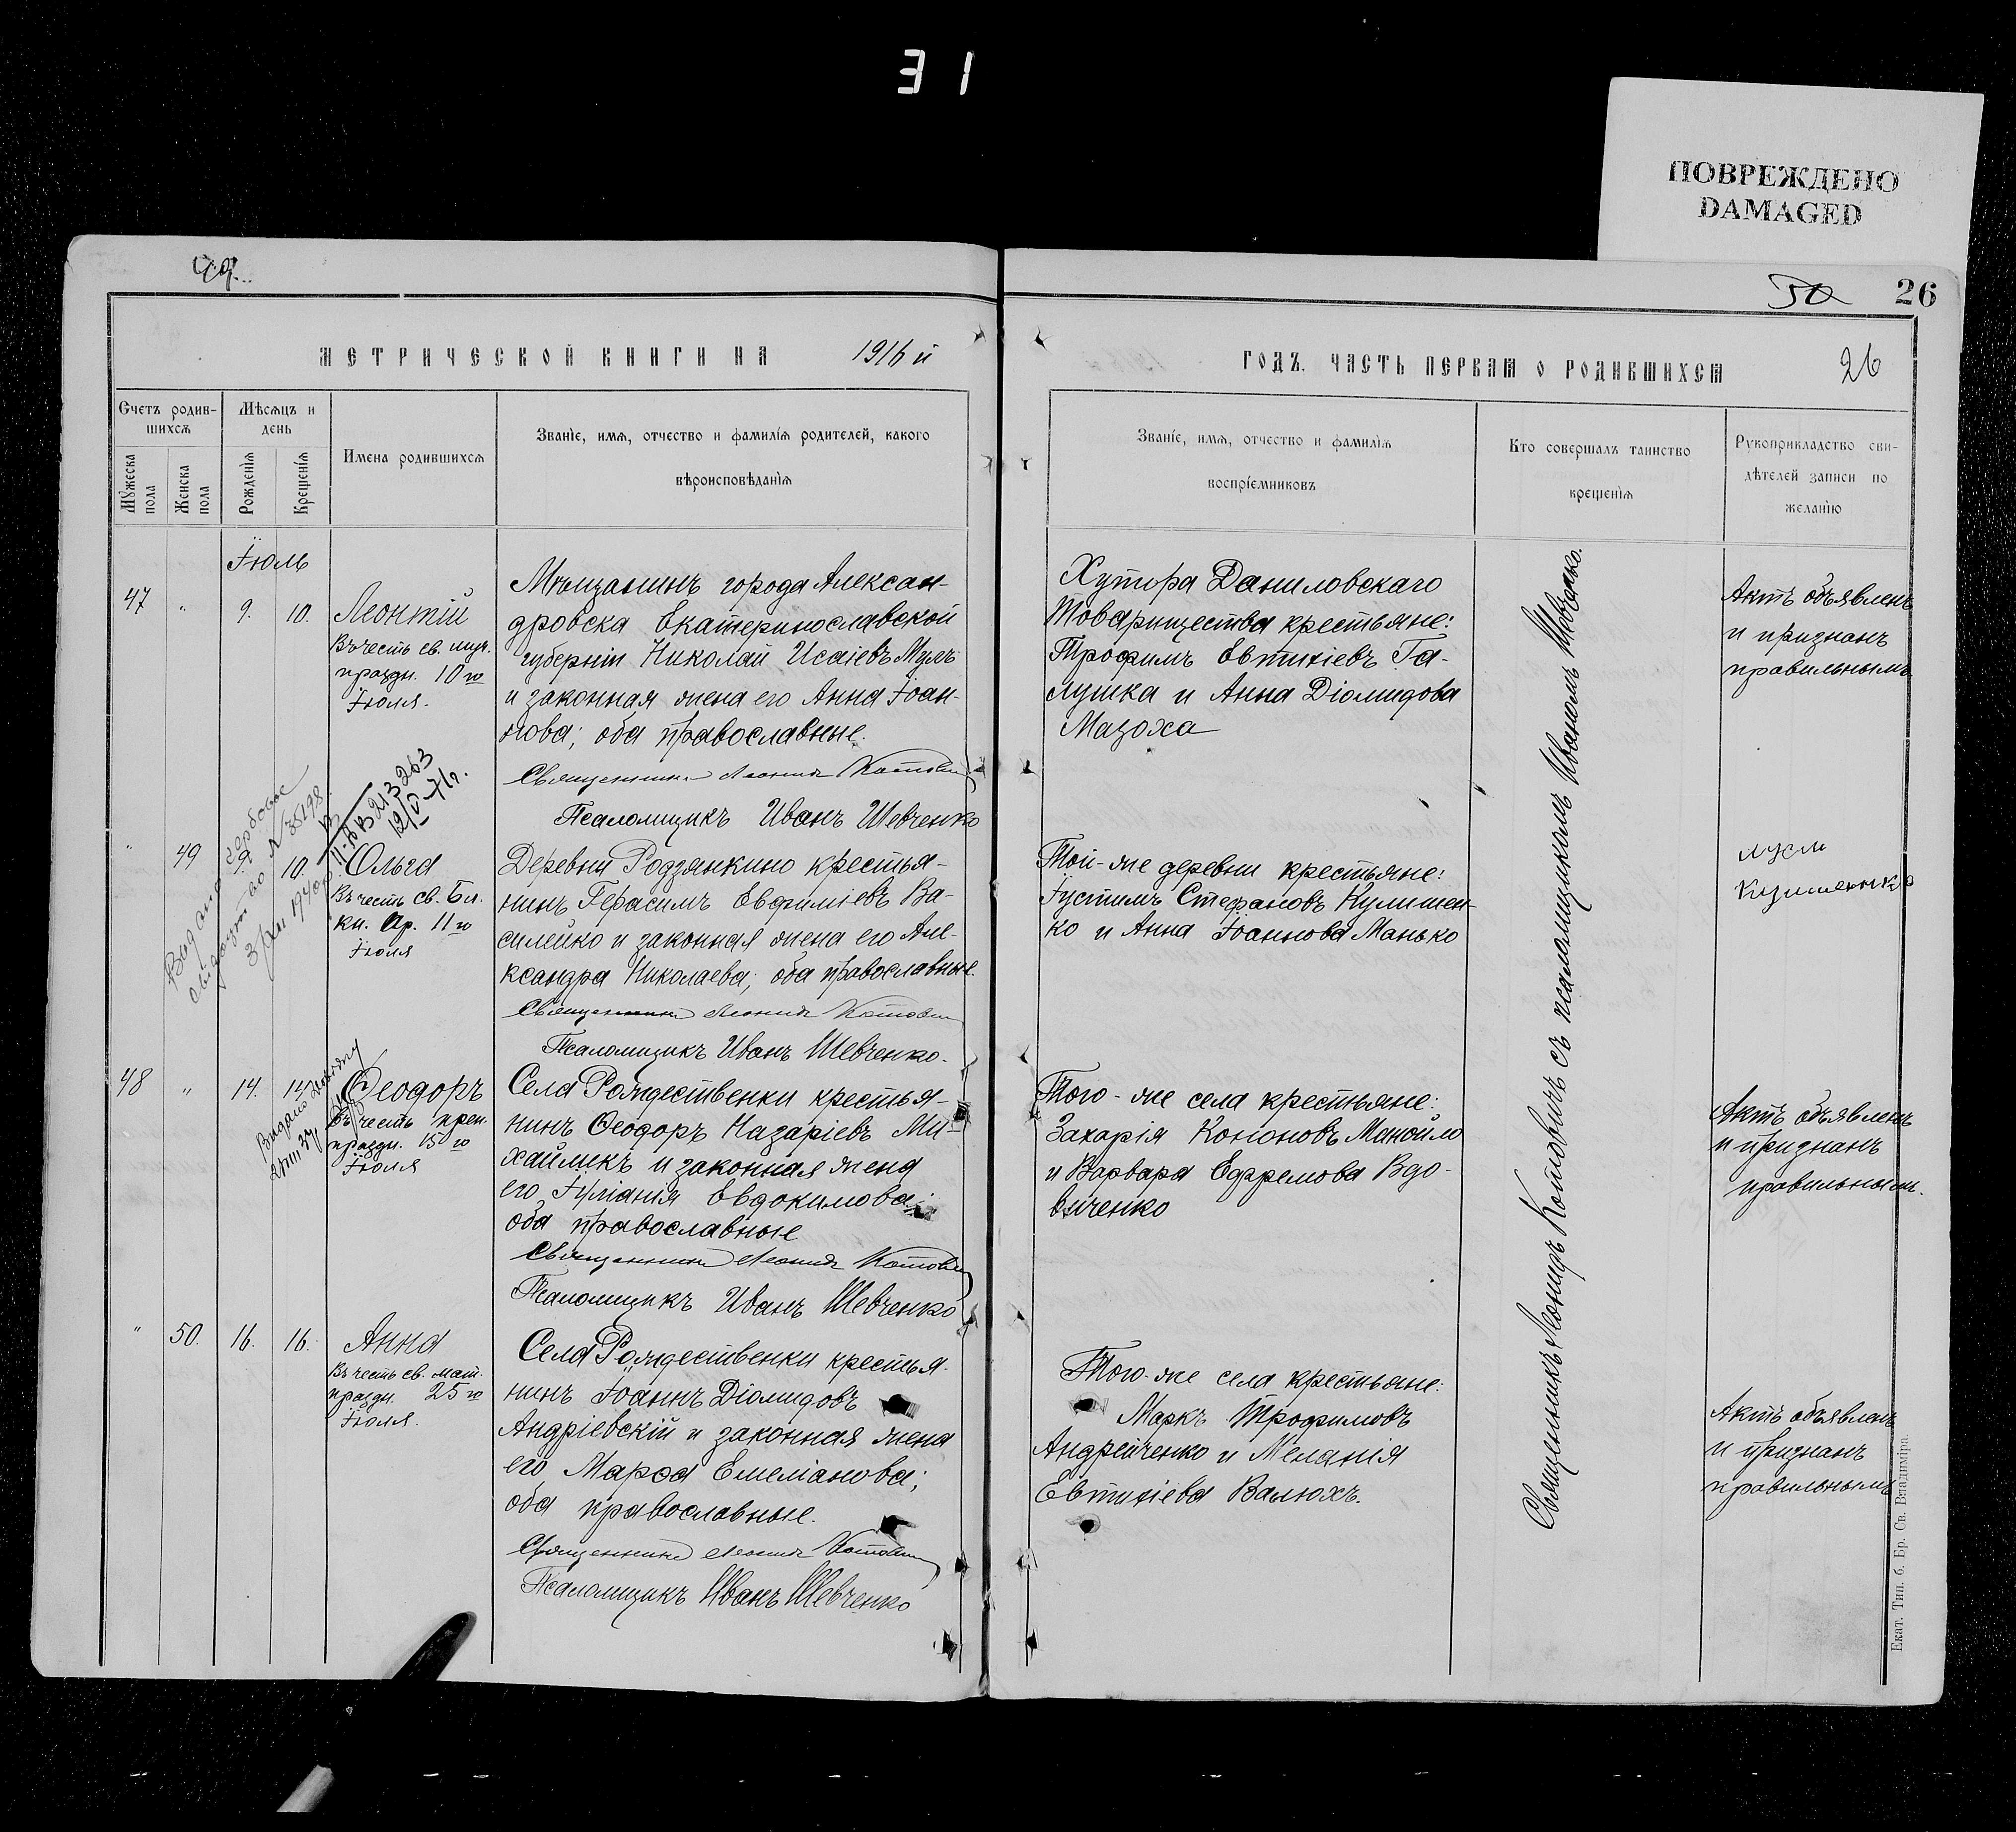 31
ПОВРЕЖДЕНО
DAMAGED
49.
50
26
МЕТРИЧЕСКОЙ КНИГИ НА 1916 й
ГОДЪ. ЧАСТЬ ПЕРВАЯ О РОДИВШИХСЯ
26
Счетъ родив-
шихся
Мѣсяцъ и
день
Мужеска
пола
Женска
пола
Рожденія
Крещенія
Имена родившихся
Званіе, имя, отчество и фамилія родителей, какого
вѣроисповѣданія
Званіе, имя, отчество и фамилія
воспріемниковъ
Кто совершалъ таинство
крещенія
Рукоприкладство сви-
дѣтелей записи по
желанію
Іюль
47 " 9. 10. Леонтій
Въ честь св. муч.
праздн. 10 го
Іюля.
Мѣщанинъ города Алексан-
дровска Екатеринославской
губерніи Николай Исаіевъ Муль
и законная жена его Анна Іоан-
нова; оба православные.
Священникъ Леонидъ Котовичъ
Псаломщикъ Иванъ Шевченко
Хутора Даниловскаго
Товарищества крестьяне:
Трофимъ Евтихіевъ Га-
лушка и Анна Діомидова
Мазоха
Актъ объявленъ
и признанъ
правильнымъ
213263
" 49 9. 10. Ольга
Въ честь св. Бл.
кн. Ар. 11 го
Іюля
Выдано
№ 35198
1940
Деревни Родзянкино крестья-
нинъ Герасимъ Евфиміевъ Ва-
силейко и законная жена его Але-
ксандра Николаева; оба православные.
Священникъ Леонидъ Котовичъ
Псаломщикъ Иванъ Шевченко.
Той-же деревни крестьяне:
Іустинъ Стефановъ Кулишен-
ко и Анна Іоаннова Манько
48 " 14. 14. Ѳеодоръ
Въ честь
праздн. 15 го
Іюля
Видано
Села Рождественки крестья-
нинъ Ѳеодоръ Назаріевъ Ми-
хайликъ и законная жена
его Іуліанія Евдокимова;
оба православные
Священникъ Леонидъ Котовичъ
Псаломщикъ Иванъ Шевченко
Того-же села крестьяне:
Захарія Кононовъ Манойло
и Варвара Ефремова Вдо-
виченко
Актъ объявленъ
и признанъ
правильнымъ.
" 50. 16. 16. Анна
Въ честь св. мат.
праздн. 25 го
Іюля.
Села Рождественки крестья-
нинъ Іоаннъ Діомидовъ
Андріевскій и законная жена
его Марѳа Емеліанова;
оба православные.
Священникъ Леонидъ Котовичъ
Псаломщикъ Иванъ Шевченко
Того-же села крестьяне:
Маркъ Трофимовъ
Андрейченко и Меланія
Евтихіева Валюхъ.
Актъ объявленъ
и признанъ
правильнымъ
Священникъ Леонидъ Котовичъ съ псаломщикомъ Иваномъ Шевченко.
Екат. Тип. б. Бр. Св. Владиміра.